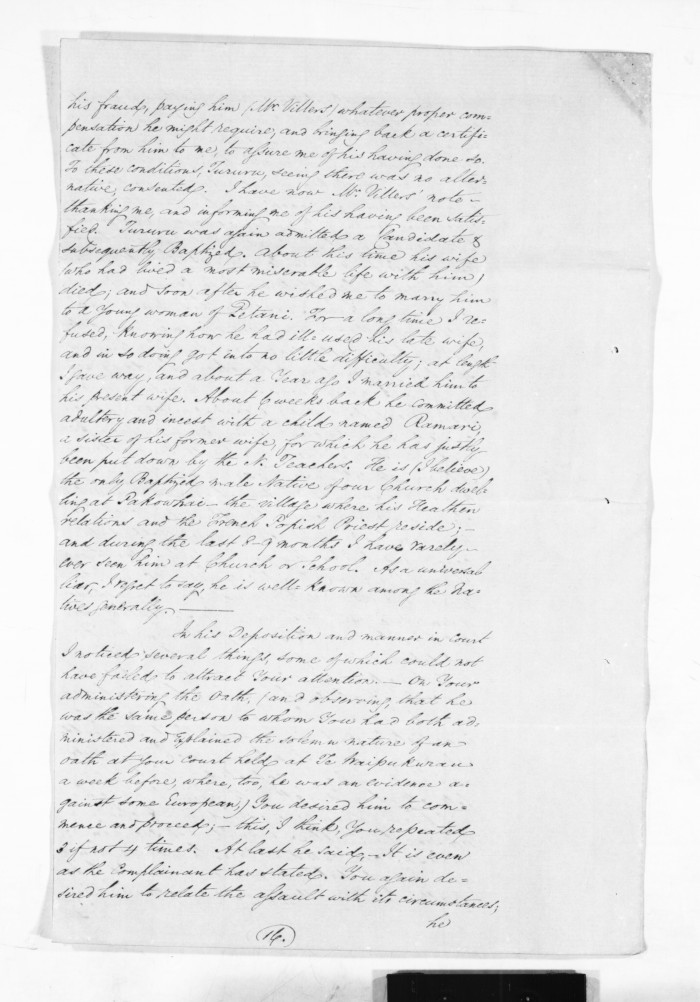 his fraud, paying him (Mr. Villers) whatever proper com-
pensation he might require, and bringing back a certifi-
cate from him to me, to assure me of his having done so.
To these conditions, Tururu, seeing there was no alter-
native, consented. I have now Mr. Villers' note—
thanking me, and informing me of his having been satis-
fied. Tururu was again admitted a Candidate &
subsequently Baptized. About this time his wife
(who had lived a most miserable life with him)
died; and soon after he wished me to marry him
to a young woman of Petani. For a long time I re-
fused, knowing how he had ill-used his late wife,
and in so doing got into no little difficulty; at length
I gave way, and about a Year ago I married him to
his present wife. About 6 weeks back he committed
adultery and incest with a child named Ramari,
a sister of his former wife, for which he has justly
been put down by the N. Teachers. He is (I believe)
the only Baptized male Native of our Church dwel-
ling at Pakowhai—the village where his Heathen
relations and the French Popish Priest reside;—
and during the last 8-9 months I have rarely
ever seen him at Church or School. As a universal
liar, I regret to say, he is well-known among the Na-
tives generally.———
In his Deposition and manner in Court
I noticed several things, some of which could not
have failed to attract Your attention.— On Your
administering the Oath, (and observing, that he
was the same person to whom You had both ad-
ministered and explained the solemn nature of an
oath at your Court held at Te Waipukurau
a week before, where, too, he was an evidence a-
gainst some European,) You desired him to com-
mence and proceed;—this, I think, You repeated
3 if not 4 times. At last he said,—It is even
as the Complainant has stated. You again de-
sired him to relate the assault with its circumstances;
he
(16.)